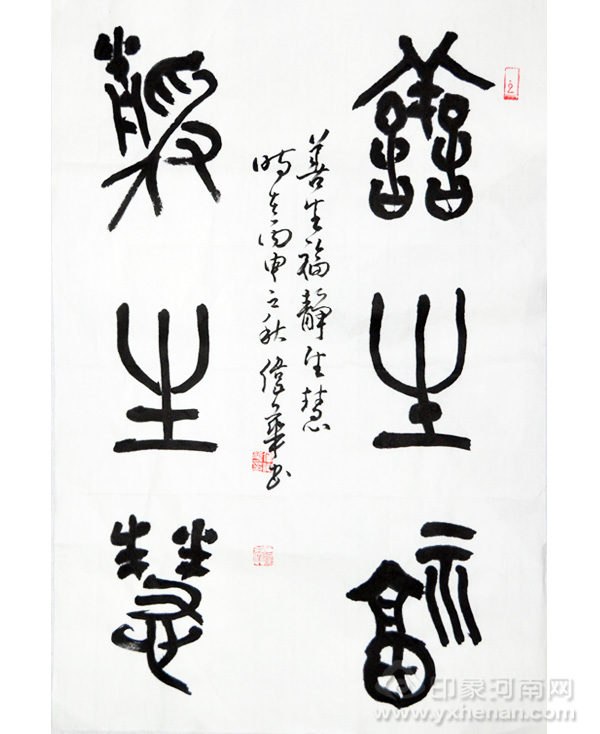 善生福
静生慧
善生福静生慧
时在丙申之秋伟华书
印象河南网
www.yxhenan.com